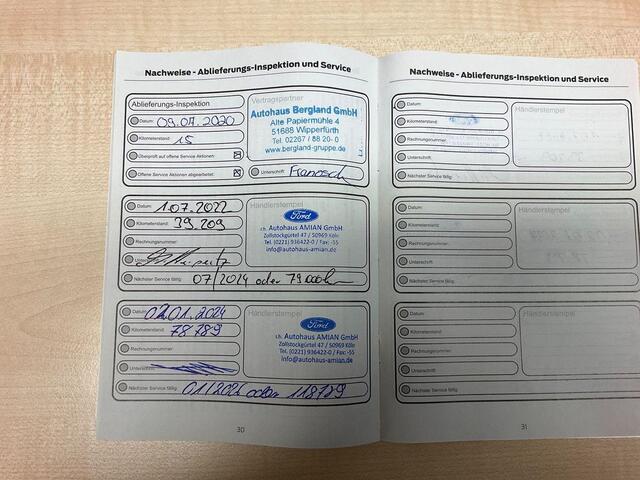 Nachweise - Ablieferungs-Inspektion und Service
Ablieferungs-Inspektion
Datum: 09.07.2020
Kilometerstand: 15
Überprüft auf offene Service Aktionen:
Offene Service Aktionen abgearbeitet:
Vertragspartner
Autohaus Bergland GmbH
Alte Papiermühle 4
51688 Wipperfürth
Tel. 02267 / 88 20- 0
www.bergland-gruppe.de
Unterschrift:
Datum: 1.07.2022
Kilometerstand: 39.209
Rechnungsnummer:
Nächster Service fällig: 07/2024 oder 79.000km
Händlerstempel
Ford
Autohaus AMIAN GmbH
Zollstockgürtel 47 / 50969 Köln
Tel. (0221) 936422-0 / Fax: -55
info@autohaus-amian.de
Datum: 02.01.2024
Kilometerstand: 78789
Rechnungsnummer:
Unterschrift:
Nächster Service fällig: 01/2026 oder 118789
Händlerstempel
Ford
Autohaus AMIAN GmbH
Zollstockgürtel 47 / 50969 Köln
Tel. (0221) 936422-0 / Fax: -55
info@autohaus-amian.de
30
Nachweise - Ablieferungs-Inspektion und Service
Datum:
Kilometerstand:
Rechnungsnummer:
Unterschrift:
Nächster Service fällig:
Händlerstempel
Datum:
Kilometerstand:
Rechnungsnummer:
Unterschrift:
Nächster Service fällig:
Händlerstempel
Datum:
Kilometerstand:
Rechnungsnummer:
Unterschrift:
Nächster Service fällig:
Händlerstempel
31